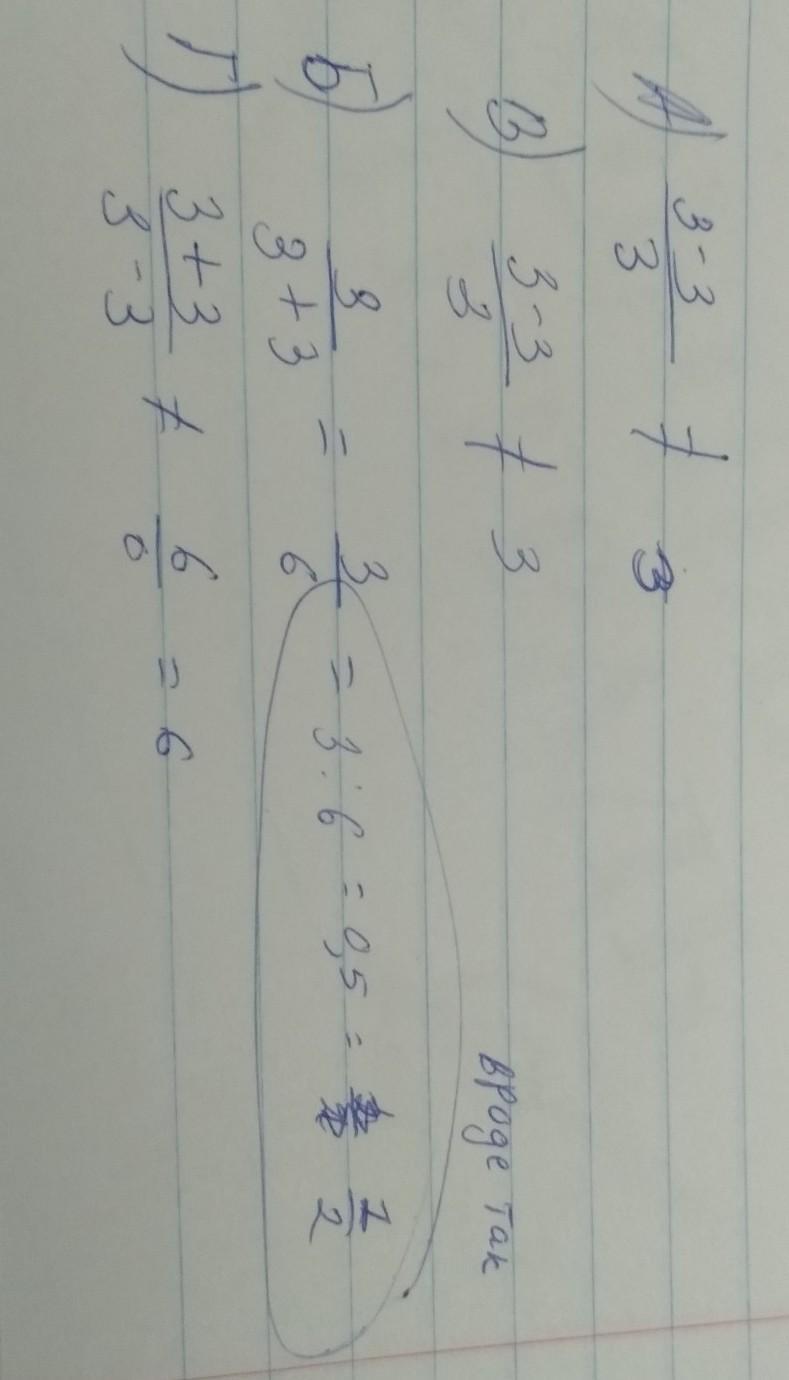 А) (3-3)/3 ≠ 3
В) (3-3)/3 ≠ 3
Б) 3/(3+3) = 3/6 = 3:6 = 0,5 = 1/2
вроде так
Г) (3+3)/(3-3) ≠ 6/0 = 6